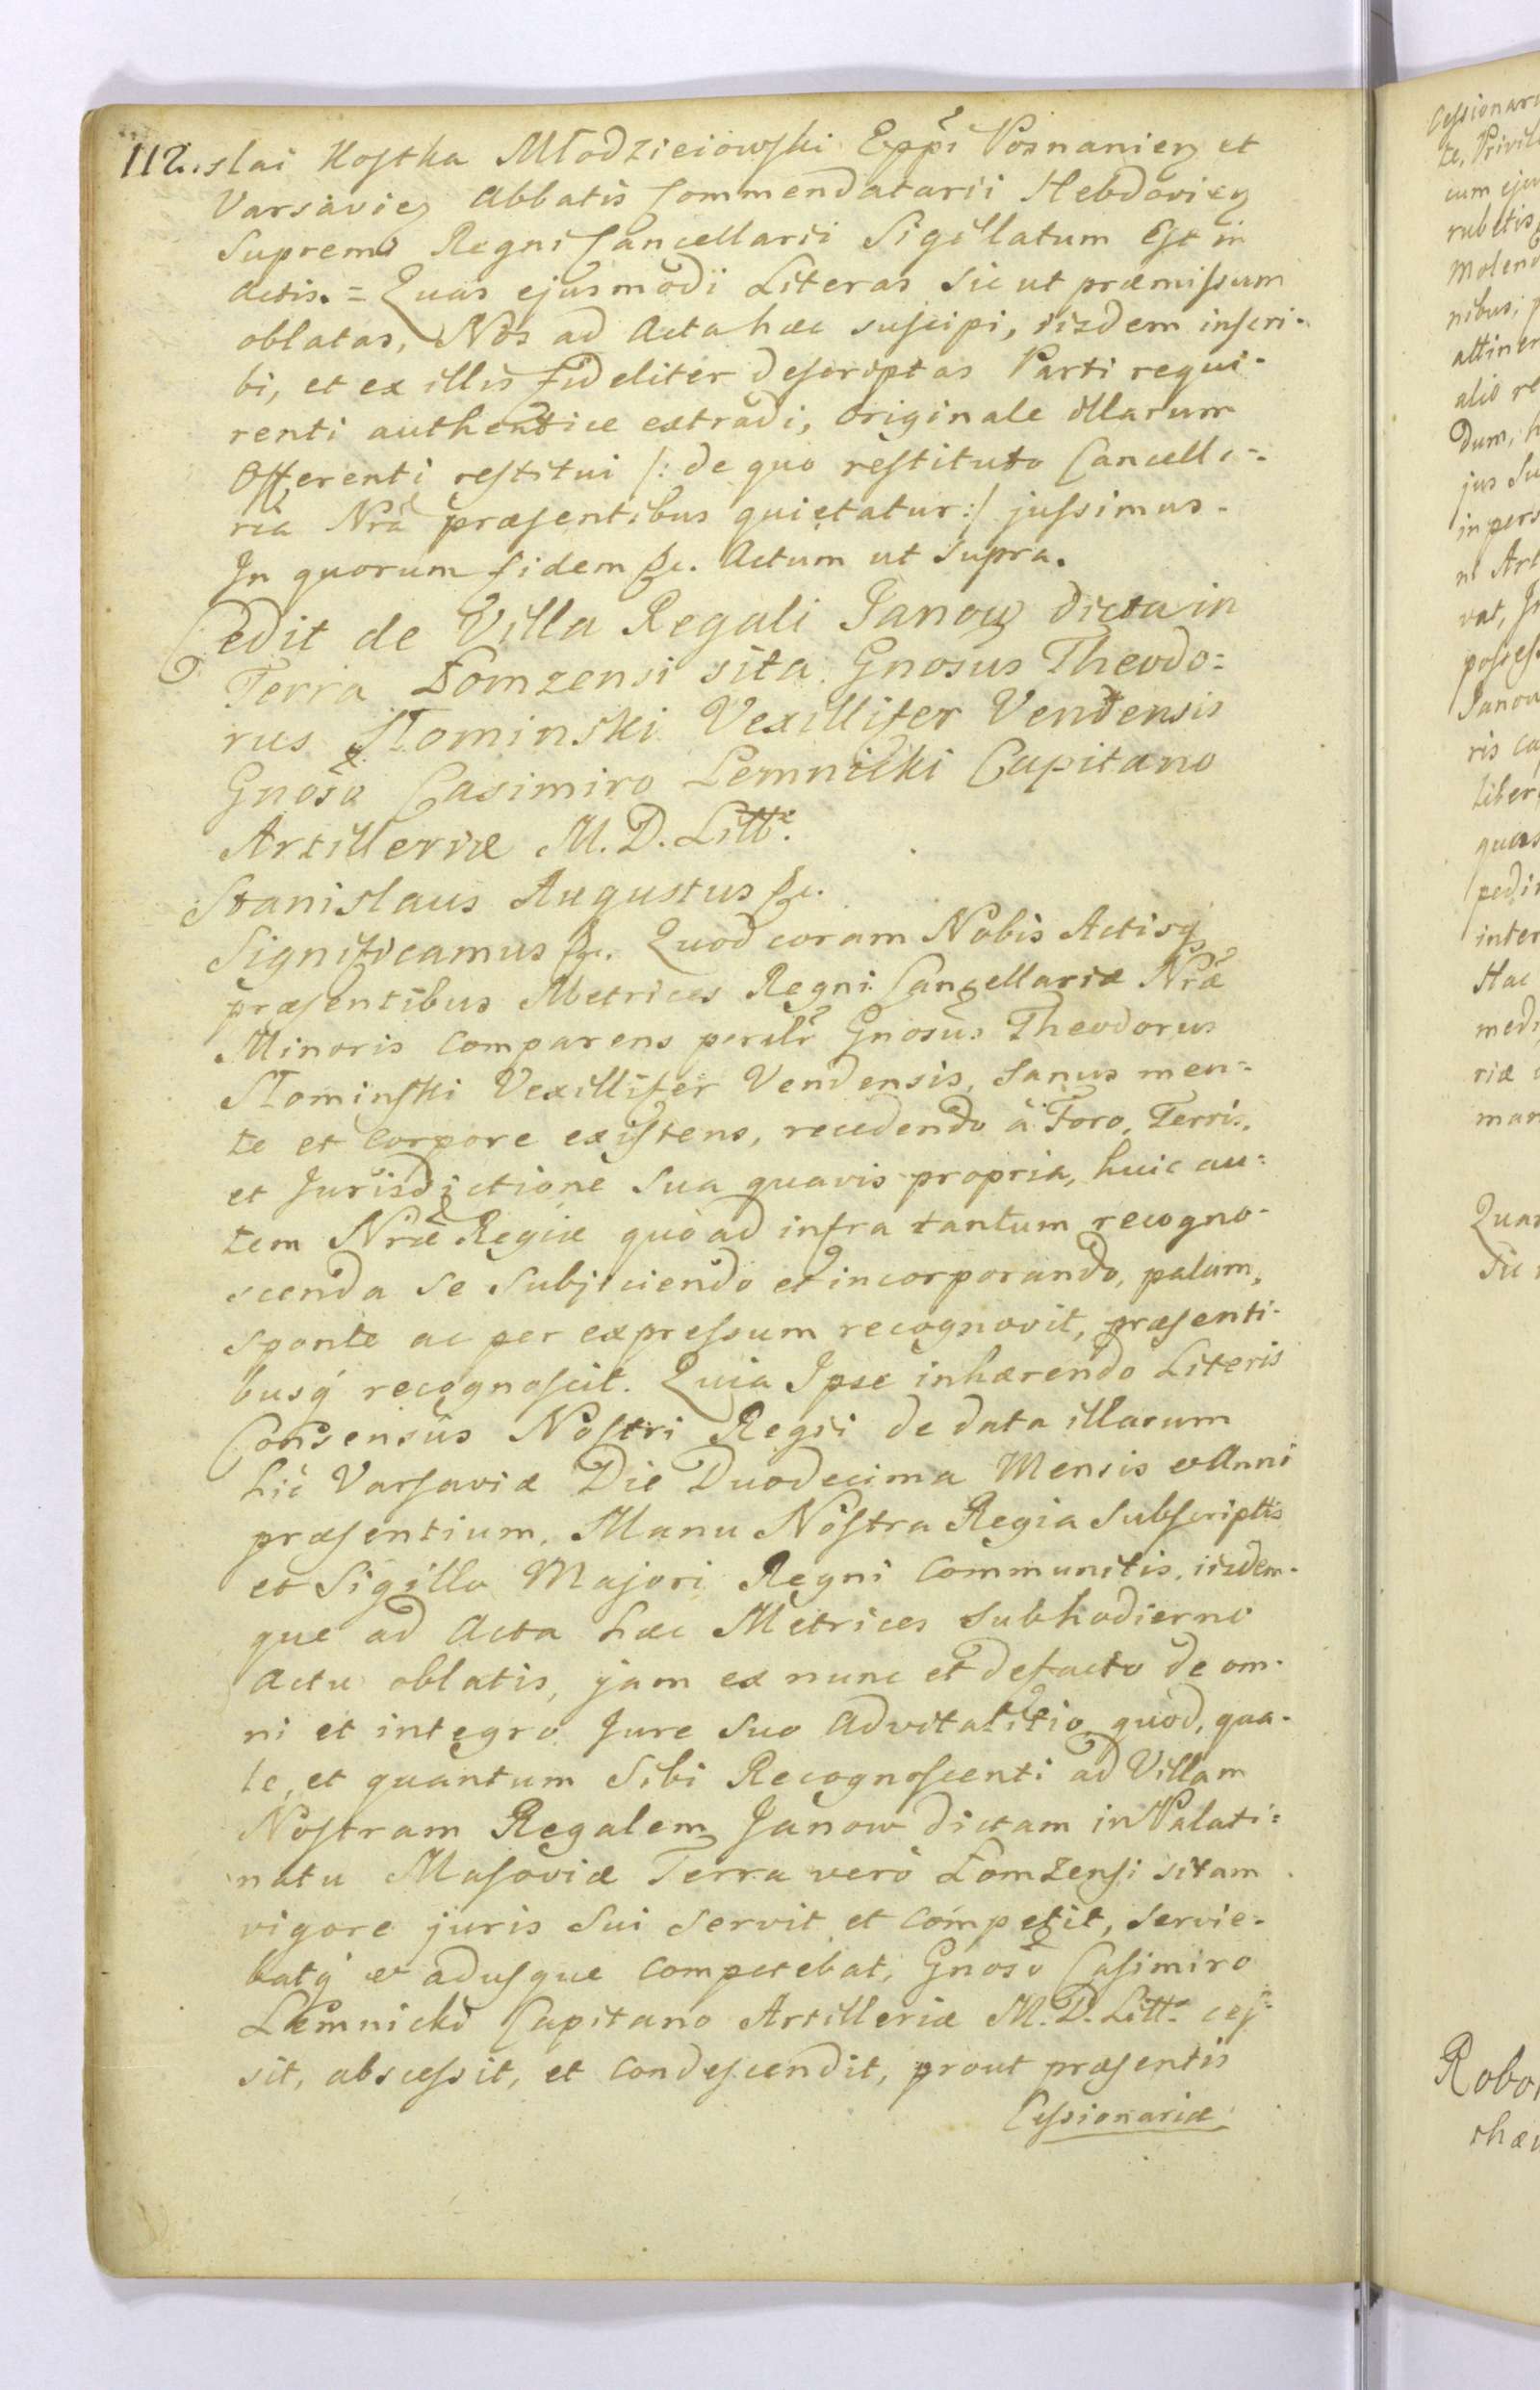 112. slai Kostka Młodzieiowski Eppi Posnanien et
Varsavien Abbatis Commendatarii Hebdovien
Supremi Regni Cancellarii Sigillatum Est in
Actis. = Quas ejusmodi Literas sic ut præmissum
oblatas, Nos ad Acta hæc suscipi, iisdem inscri-
bi, et ex illis fideliter descriptas Parti requi-
renti authentice extradi, originale illarum
Offerenti restitui /: de quo restituto Cancella-
ria Nra præsentibus quietatur :/ jussimus.
In quorum fidem &c. Actum ut Supra.
Cedit de Villa Regali Janow dicta in
Terra Łomzensi sita Gnosus Theodo=
rus Słominski Vexillifer Vendensis
Gnoso Casimiro Lemnicki Capitano
Artilleriæ M. D. Litt.
Stanislaus Augustus &c.
Significamus &c. Quod coram Nobis Actisq
præsentibus Metrices Regni Cancellariæ Nræ
Minoris Comparens perillr Gnosus Theodorus
Słominski Vexillifer Vendensis, Sanus men=
te et Corpore existens, recedendo à Foro, Terris,
et Jurisdictione Sua quavis propria, huic au=
tem Nræ Regiæ quo ad infra tantum recogno-
scenda se subjiciendo et incorporando, palam,
sponte ac per expressum recognovit, præsenti-
busq recognoscit. Quia Ipse inhærendo Literis
Consensus Nostri Regii de data illarum
hic Varsaviæ Die Duodecima Mensis et Anni
præsentium, Manu Nostra Regia Subscriptis
et Sigillo Majori Regni Communitis, iisdem-
que ad Acta hæc Metrices sub hodierno
Actu oblatis, jam ex nunc et de facto de om-
ni et integro Jure Suo Advitalitio quod, qua-
le, et quantum Sibi Recognoscenti ad Villam
Nostram Regalem Janow dictam in Palati=
natu Masoviæ Terra verò Łomzensi sitam
vigore juris Sui Servit et Competit, servie-
batq et adusque Competebat, Gnoso Casimiro
Lemnicki Capitano Artilleriæ M. D. Litt. ces-
sit, abscessit, et Condescendit, prout præsentis
Cessionariæ
Cessionari
te, Privil
cum eju
rubetis,
Molend
nibus,
attinen
alio re
dum, h
jus Su
in pers
ni Art
vat, J
posses
Janow
ris ca
liber
quas
pedi
inter
Hac
medi
riæ
man
Quar
Sic
Robor